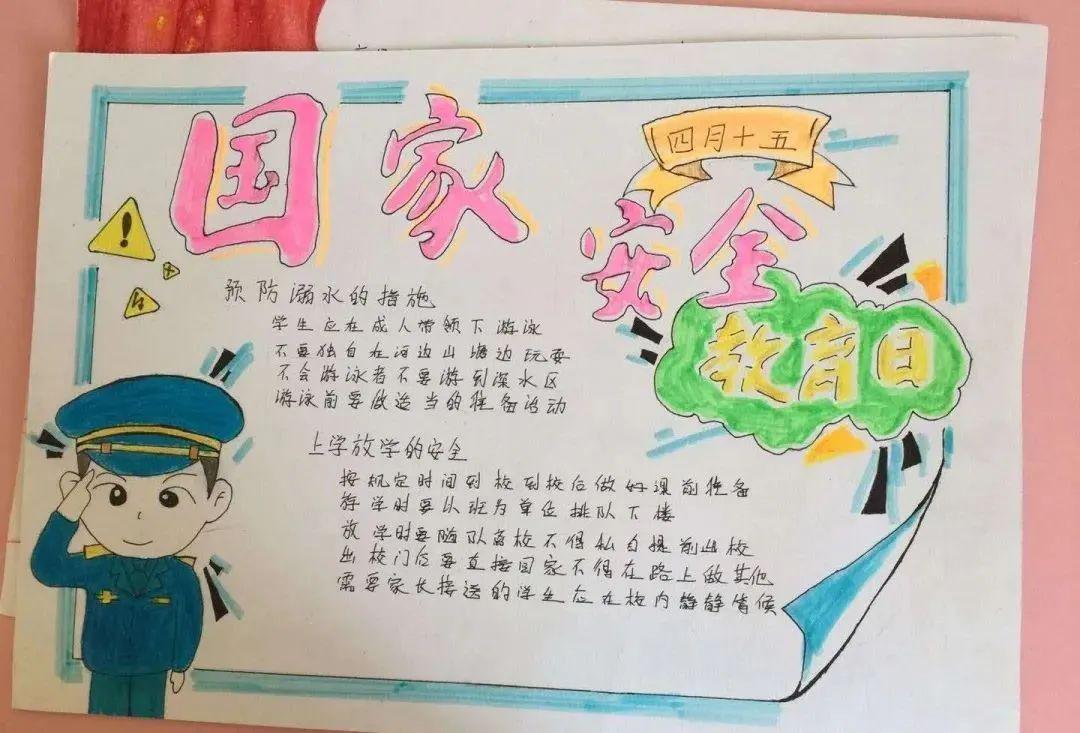 国家
四月十五
安全
教育日
预防溺水的措施
学生应在成人带领下游泳
不要独自在河边山塘边玩耍
不会游泳者不要游到深水区
游泳前要做适当的准备活动
上学放学的安全
按规定时间到校到校后做好课前准备
学时要以班为单位排队下楼
放学时要随队离校不得私自提前出校
出校门后要直接回家不得在路上做其他
需要家长接送的学生应在校内静静等候